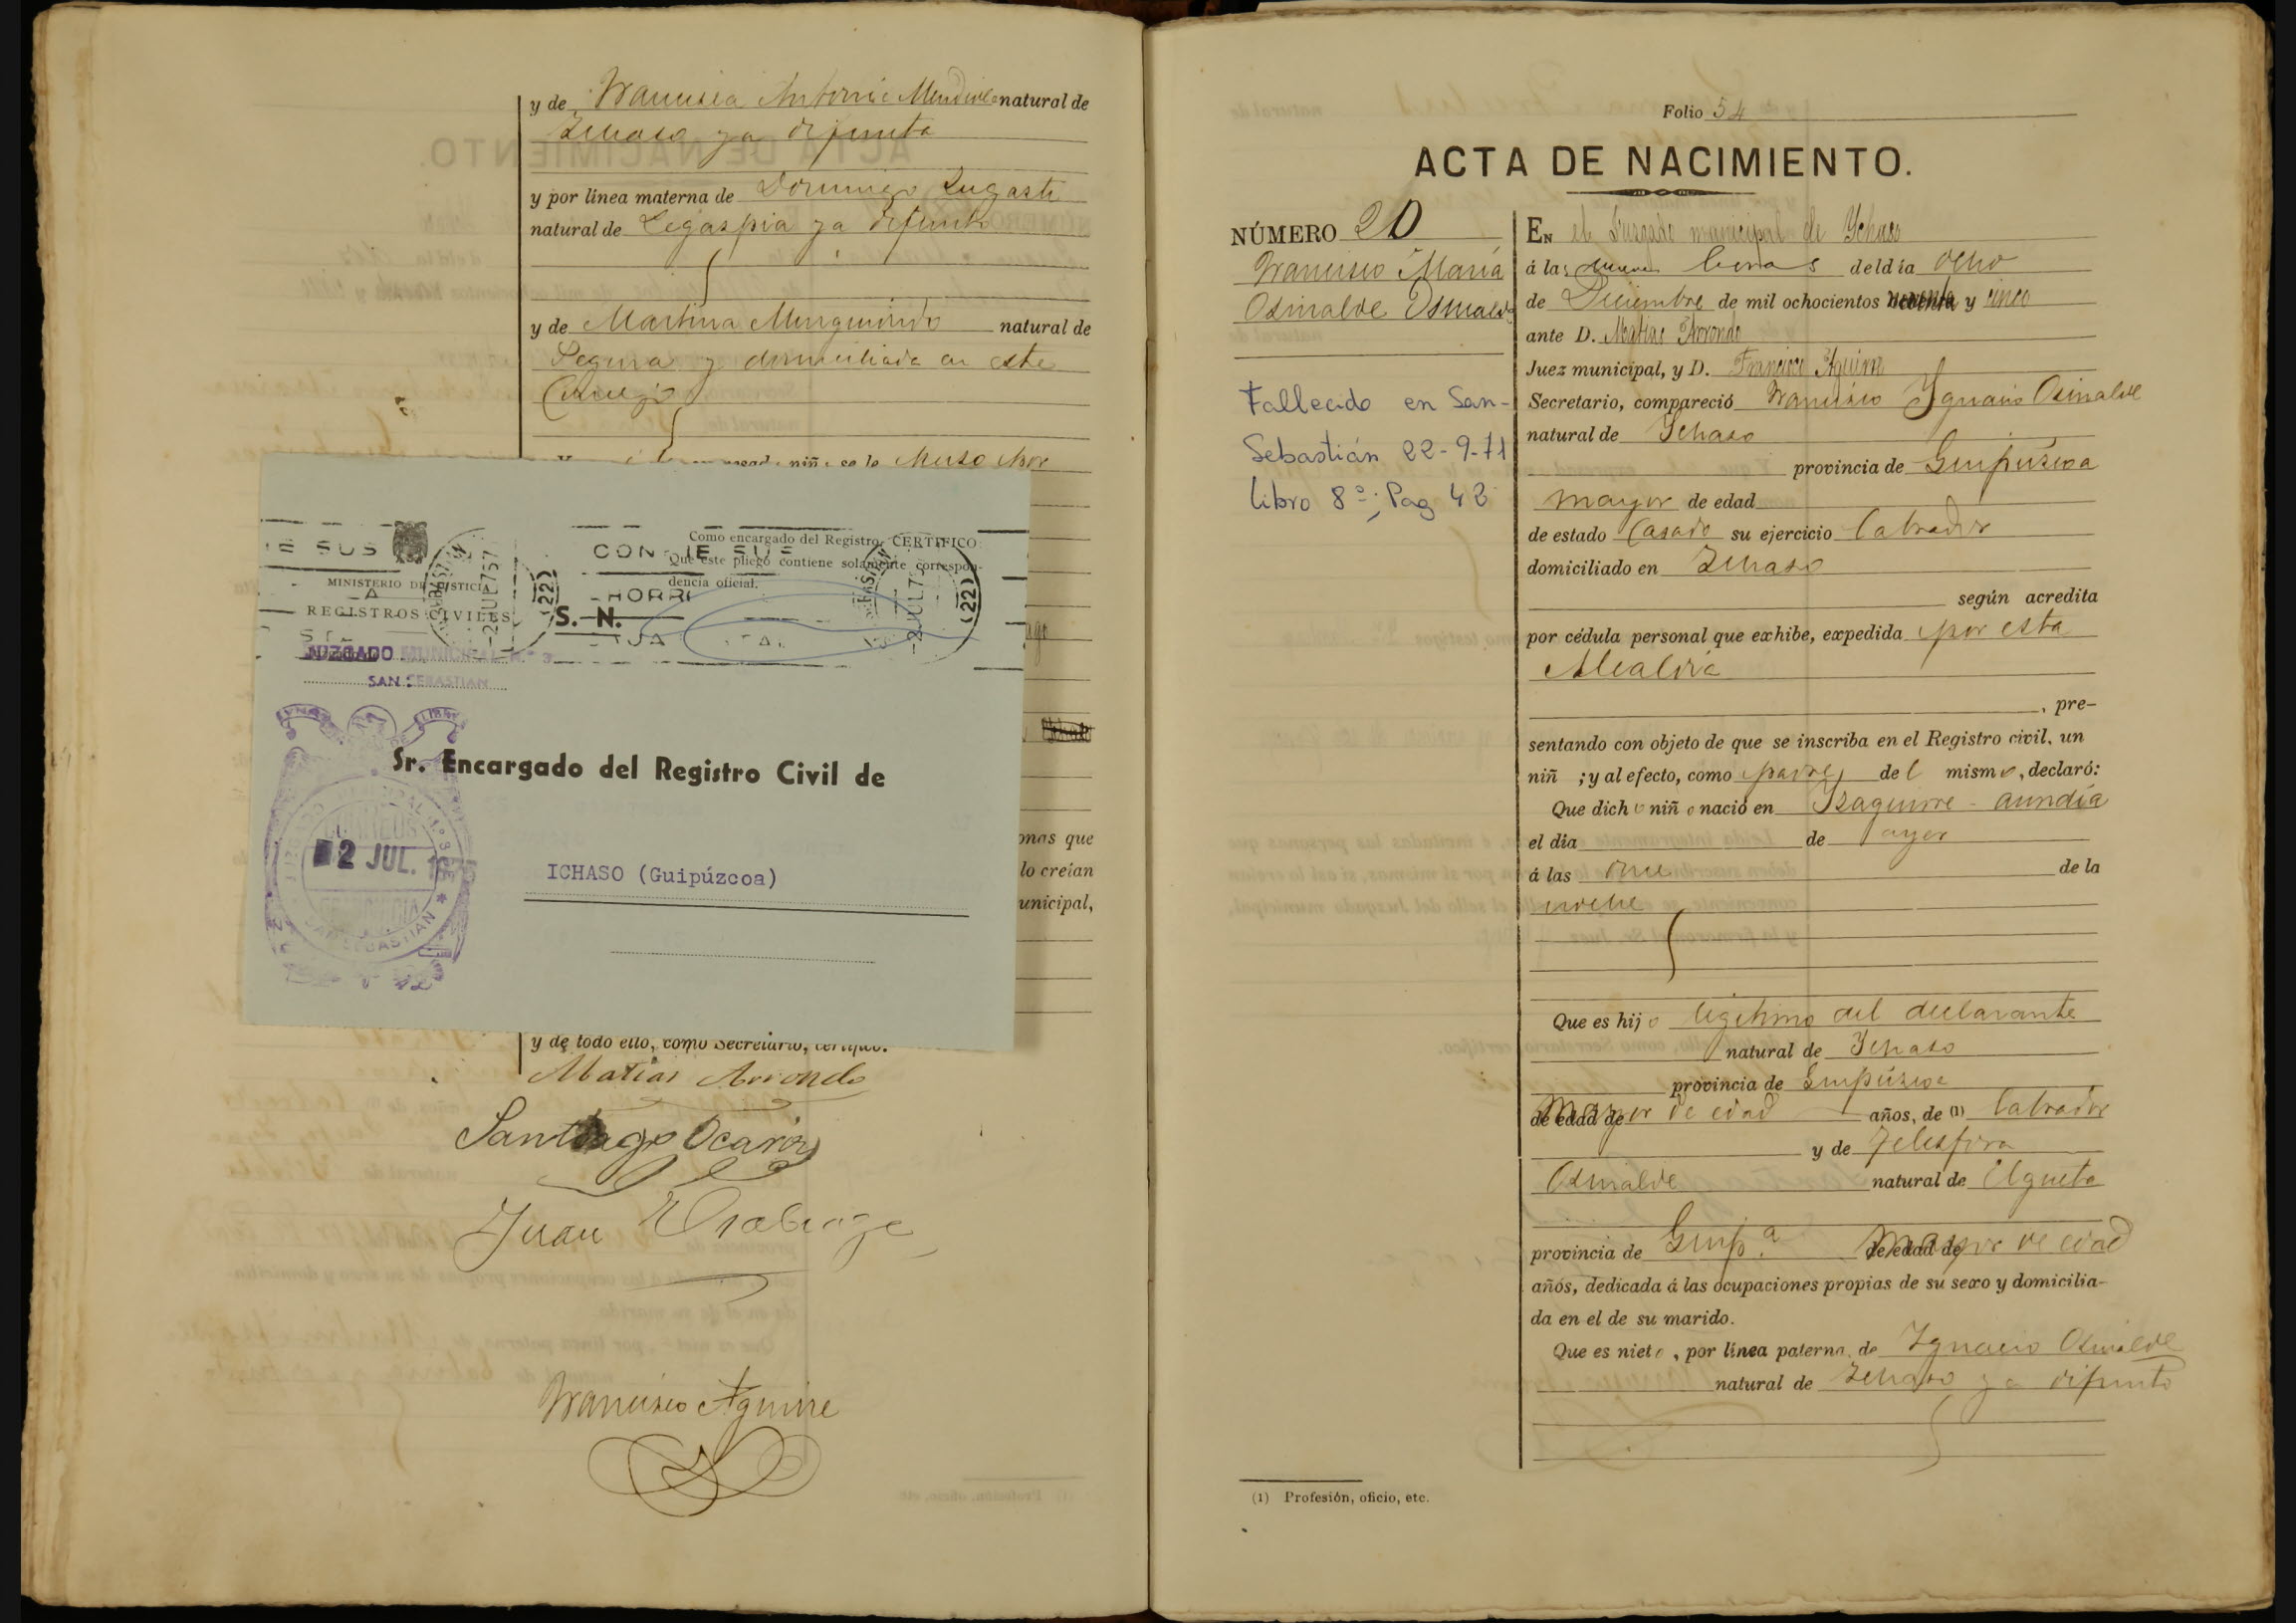 y de Francisca Antonia Mendiola natural de
Ichaso ya difunta
y por línea materna de Domingo Zugasti
natural de Legaspia ya difunto
y de Martina Murguiondo natural de
Segura y domiciliada en este
Concejo
niñ se le puso por
Como encargado del Registro, CERTIFICO:
Que este pliego contiene solamente correspon-
dencia oficial.
MINISTERIO DE JUSTICIA
REGISTROS CIVILES
S. N.
JUZGADO MUNICIPAL N.º 3
SAN SEBASTIAN
-2 JUL 75
(22)
-2 JUL 7
(22)
Sr. Encargado del Registro Civil de
2 JUL. 1975
ICHASO (Guipúzcoa)
onas que
lo creían
unicipal,
y de todo ello, como Secretario, certifico.
Matias Arrondo
Santiago Ocariz
Juan
Francisco Aguirre
Folio 54
ACTA DE NACIMIENTO.
NÚMERO 20
Francisco María
Osinalde Osinalde
Fallecido en San-
Sebastián 22-9-71
libro 8º; Pag 43
En el Juzgado municipal de Ychaso
á las nueve horas del día ocho
de Diciembre de mil ochocientos noventa y cinco
ante D. Matias Arrondo
Juez municipal, y D. Francisco Aguirre
Secretario, compareció Francisco Ygnacio Osinalde
natural de Ychaso
provincia de Guipúzcoa
mayor de edad
de estado Casado su ejercicio labrador
domiciliado en Ichaso
según acredita
por cédula personal que exhibe, expedida por esta
Alcaldía
, pre-
sentando con objeto de que se inscriba en el Registro civil, un
niñ ; y al efecto, como padre del mismo, declaró:
Que dicho niño nació en Yzaguirre-aundía
el día de ayer
á las once de la
noche
Que es hijo legítimo del declarante
natural de Ychaso
provincia de Guipúzcoa
de edad de mayor de edad años, de (1) labrador
y de Telesfora
Osinalde natural de Elgueta
provincia de Guip.a de edad de mayor de edad
años, dedicada á las ocupaciones propias de su sexo y domicilia-
da en el de su marido.
Que es nieto, por línea paterna de Ygnacio Osinalde
natural de Ichaso ya difunto
(1) Profesión, oficio, etc.